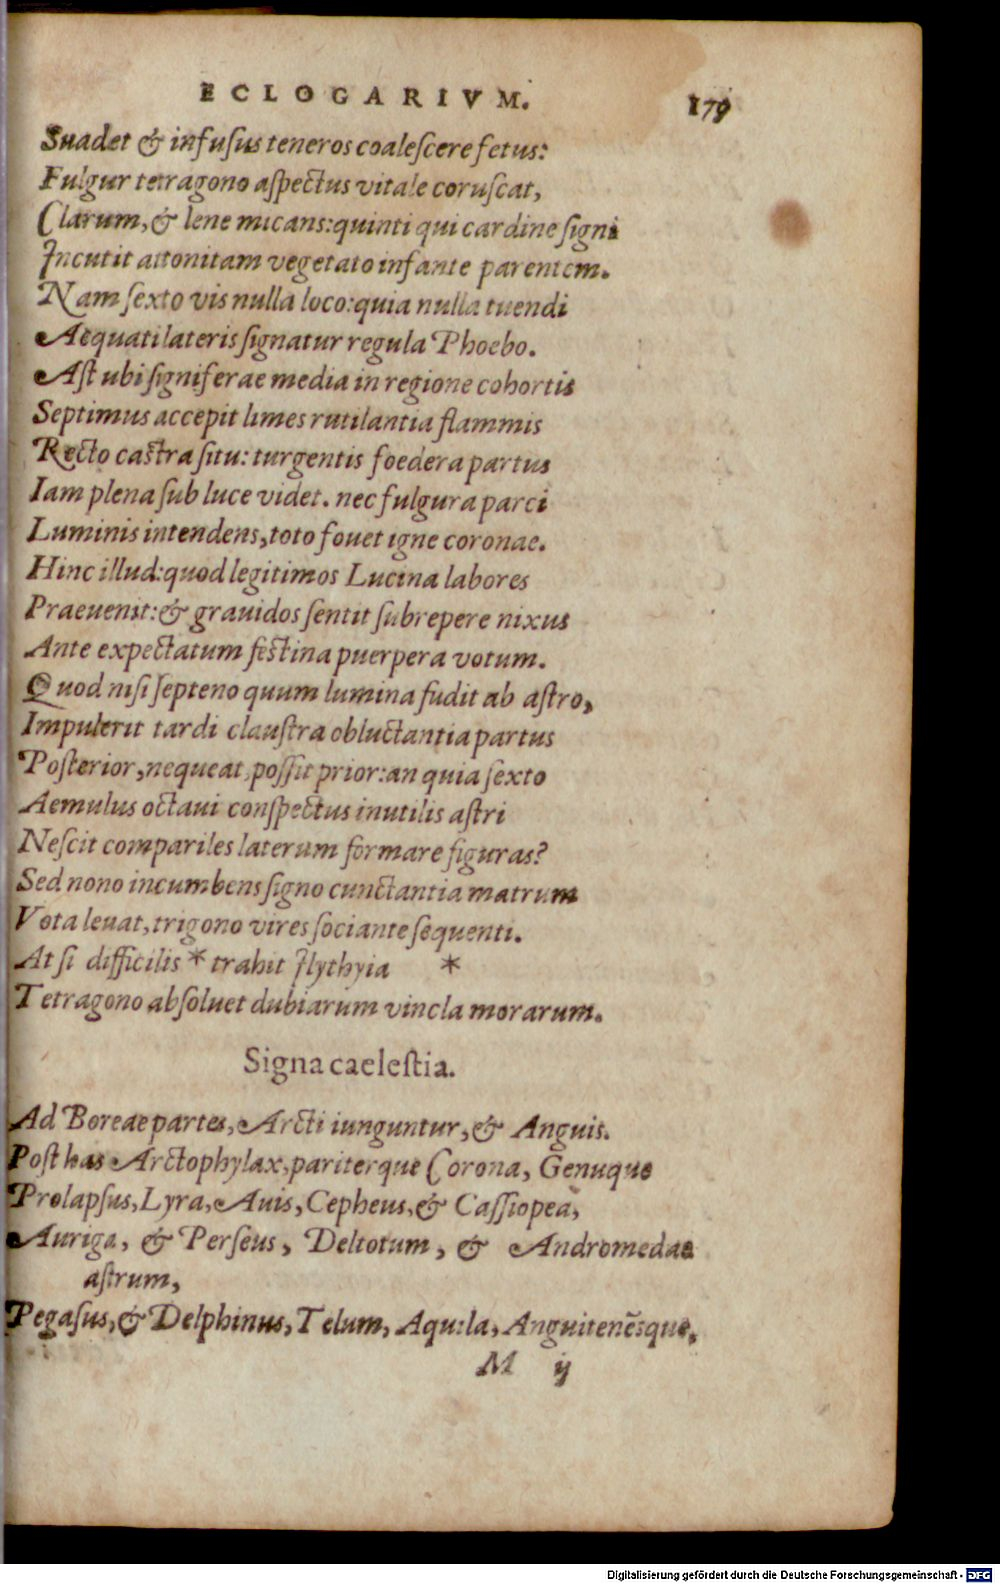 ECLOGARIVM. 179
Suadet & infuſus teneros coaleſcere fetus:
Fulgur tetragono aſpectus vitale coruſcat,
Clarum, & lene micans: quinti qui cardine ſigni
Incutit attonitam vegetato infante parentem.
Nam ſexto vis nulla loco: quia nulla tuendi
Aequati lateris ſignatur regula Phoebo.
Aſt ubi ſigniferae media in regione cohortis
Septimus accepit limes rutilantia flammis
Recto caſtra ſitu: turgentis foedera partus
Iam plena ſub luce videt. nec fulgura parci
Luminis intendens, toto fouet igne coronae.
Hinc illud: quod legitimos Lucina labores
Praeuenit: & grauidos ſentit ſubrepere nixus
Ante expectatum feſtina puerpera votum.
Quod niſi ſepteno quum lumina fudit ab aſtro,
Impulerit tardi clauſtra obluctantia partus
Poſterior, nequeat, poſſit prior: an quia ſexto
Aemulus octaui conſpectus inutilis aſtri
Neſcit compariles laterum formare figuras?
Sed nono incumbens ſigno cunctantia matrum
Vota leuat, trigono vires ſociante ſequenti.
At ſi difficilis * trahit Ilythyia *
Tetragono abſoluet dubiarum vincla morarum.
Signa caeleſtia.
Ad Boreae partes, Arcti iunguntur, & Anguis.
Poſt has Arctophylax, pariterque Corona, Genuque
Prolapſus, Lyra, Auis, Cepheus, & Caſſiopea,
Auriga, & Perſeus, Deltotum, & Andromedae
aſtrum,
Pegaſus, & Delphinus, Telum, Aquila, Anguitenēsque.
M ij
Digitalisierung gefördert durch die Deutsche Forschungsgemeinschaft - DFG